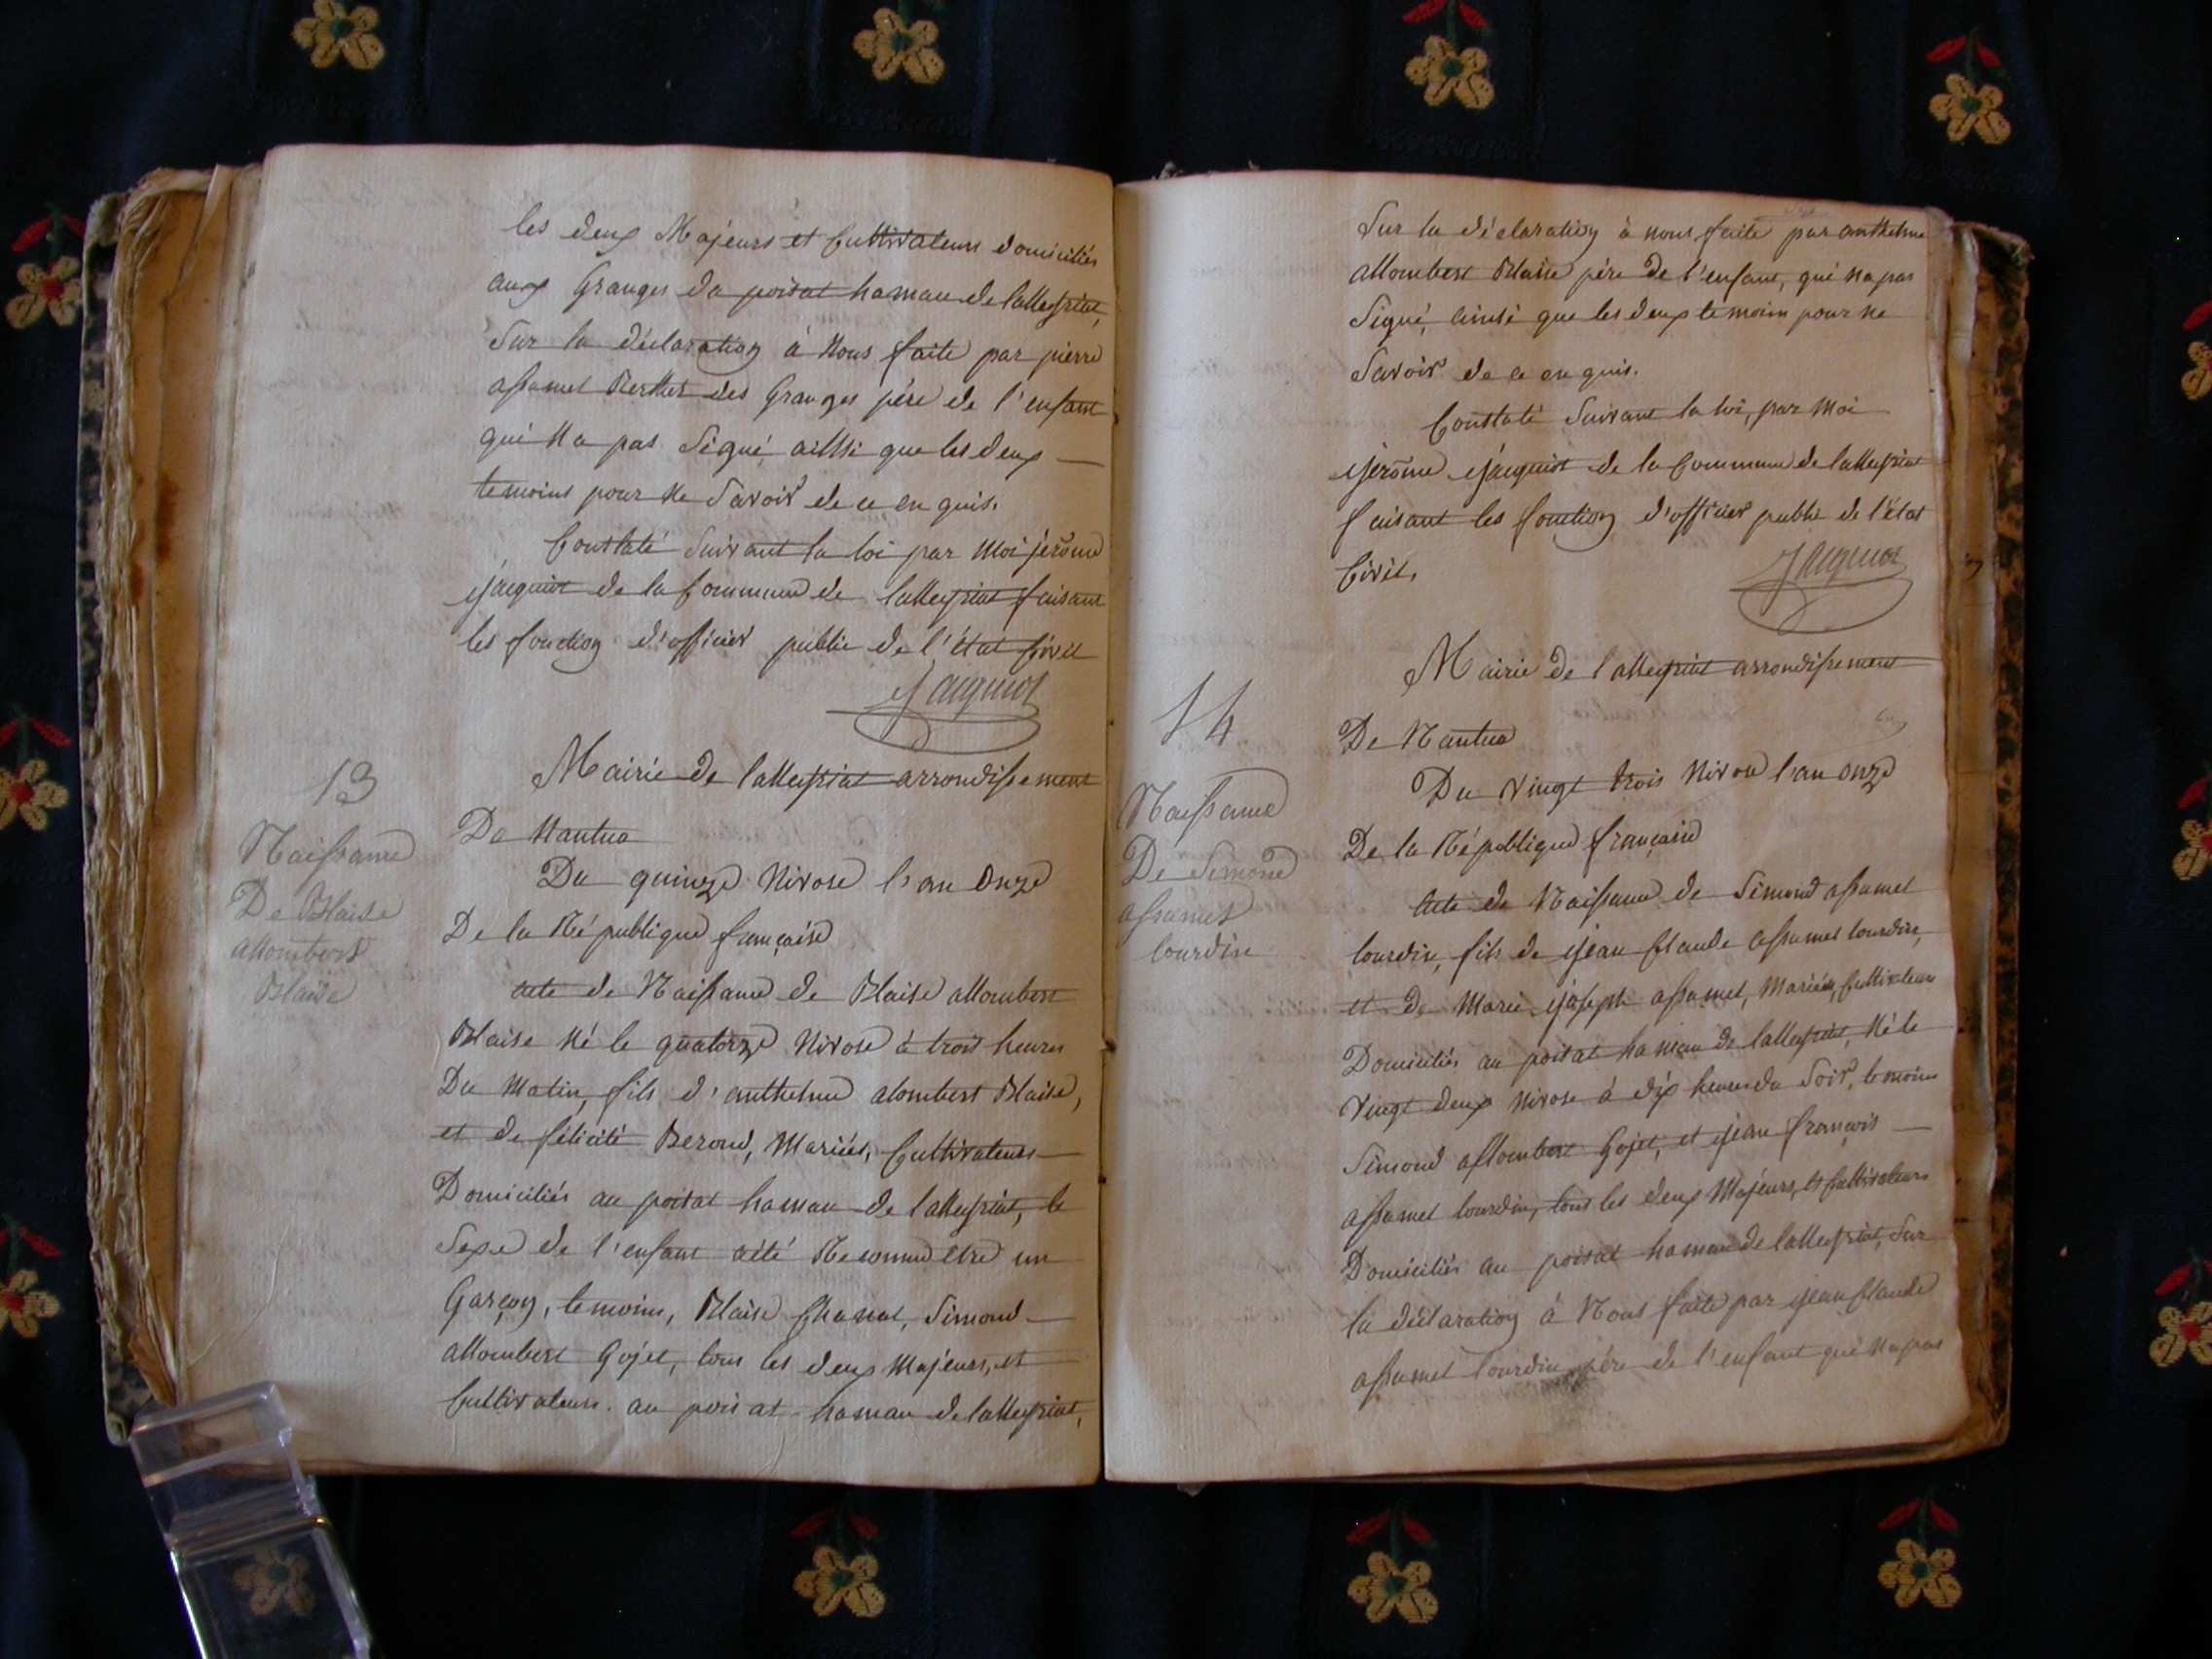 les deux Majeurs et Cultivateurs domiciliés
aux Granges du poisat hamau de lalleyriat,
Sur la déclaration à Nous faite par pierre
assamet Berthet des Granges pére de l'enfant
qui Na pas Signé, aissi que les deux
temoins pour Ne Savoir de ce en quis.
Constaté Suivant la loi par Moi jerôme
jacquiot de la Commune de lalleyriat faisant
les fonction d'officier public de l'état Civil
Jacquiot
Mairie de lalleyriat arrondissement
De Nantua
13
Naissance
De Blaise
allombert
Blaise
Du quinze Nivose l'an Onze
De la République française
acte de Naissance de Blaise allombert
Blaise Né le quatorze Nivose à trois heures
Du Matin, fils d'anthelme alombert Blaise,
et de félicité Beroud, Mariés, Cultivateurs
Domiciliés au poisat hamau de lalleyriat, le
Sexe de l'enfant aété Reconnu etre un
Garçon, temoins, Blaise Chanat, Simond
allombert Gojet, tous les deux Majeurs, et
Cultivateurs au poisat hamau de lalleyriat,
Sur la déclaration à nous faite par anthelme
allombert Blaise pére De l'enfant, qui Na pas
Signé, ainsi que les deux temoins pour Ne
Savoir de ce en quis.
Constaté Suivant la loi, par Moi
jerôme jacquiot de la Commune de lalleyriat
faisant les fonction d'officier public de l'état
Civil,
Jacquiot
Mairie de lalleyriat arrondissement
De Nantua
14
Naissance
De Simond
assamet
lourdin
Du Vingt trois Nivose l'an onze
De la République française
Acte de Naissance de Simond assamet
lourdin, fils de jean Claude assamet lourdin,
et de Marie joseph assamet, Mariés, Cultivateurs
Domiciliés au poisat hamau de lalleyriat, Né le
Vingt deux nivose à dix heures du Soir, temoins
Simond allombert Gojet, et jean françois
assamet lourdin, tous les deux Majeurs, et Cultivateurs
Domiciliés au poisat hamau de lalleyriat, Sur
la déclaration à Nous faite par jean Claude
assamet lourdin pére de l'enfant qui Na pas